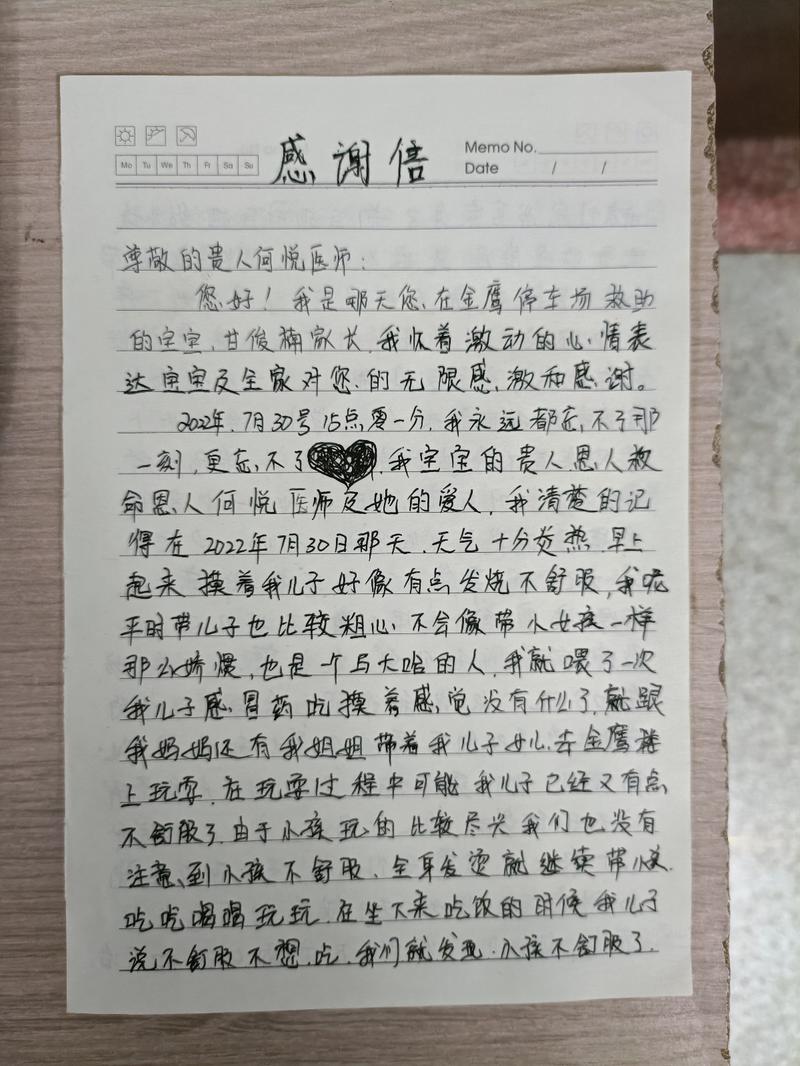 感谢信
Memo No.
Mo Tu We Th Fr Sa Su
Date / /
尊敬的贵人何悦医师：
您好！我是那天您在金鹰停车场救助
的宝宝，甘俊楠家长，我怀着激动的心情表
达宝宝及全家对您的无限感激和感谢。
2022年7月30号15点零一分，我永远都忘不了那
一刻，更忘不了，我宝宝的贵人恩人救
命恩人何悦医师及她的爱人，我清楚的记
得在2022年7月30日那天，天气十分炎热，早上
起来摸着我儿子好像有点发烧不舒服，我呢
平时带儿子也比较粗心不会像带小女孩一样
那么娇惯，也是一个马大哈的人，我就喂了一次
我儿子感冒药吃摸着感觉没有什么了，就跟
我妈妈还有我姐姐带着我儿子女儿去金鹰楼
上玩耍，在玩耍过程中可能我儿子已经又有点
不舒服了，由于小孩玩的比较尽兴我们也没有
注意到小孩不舒服，全身发烫就继续带小孩
吃吃喝喝玩玩，在坐下来吃饭的时候我儿子
说不舒服不想吃，我们就发现小孩不舒服了.